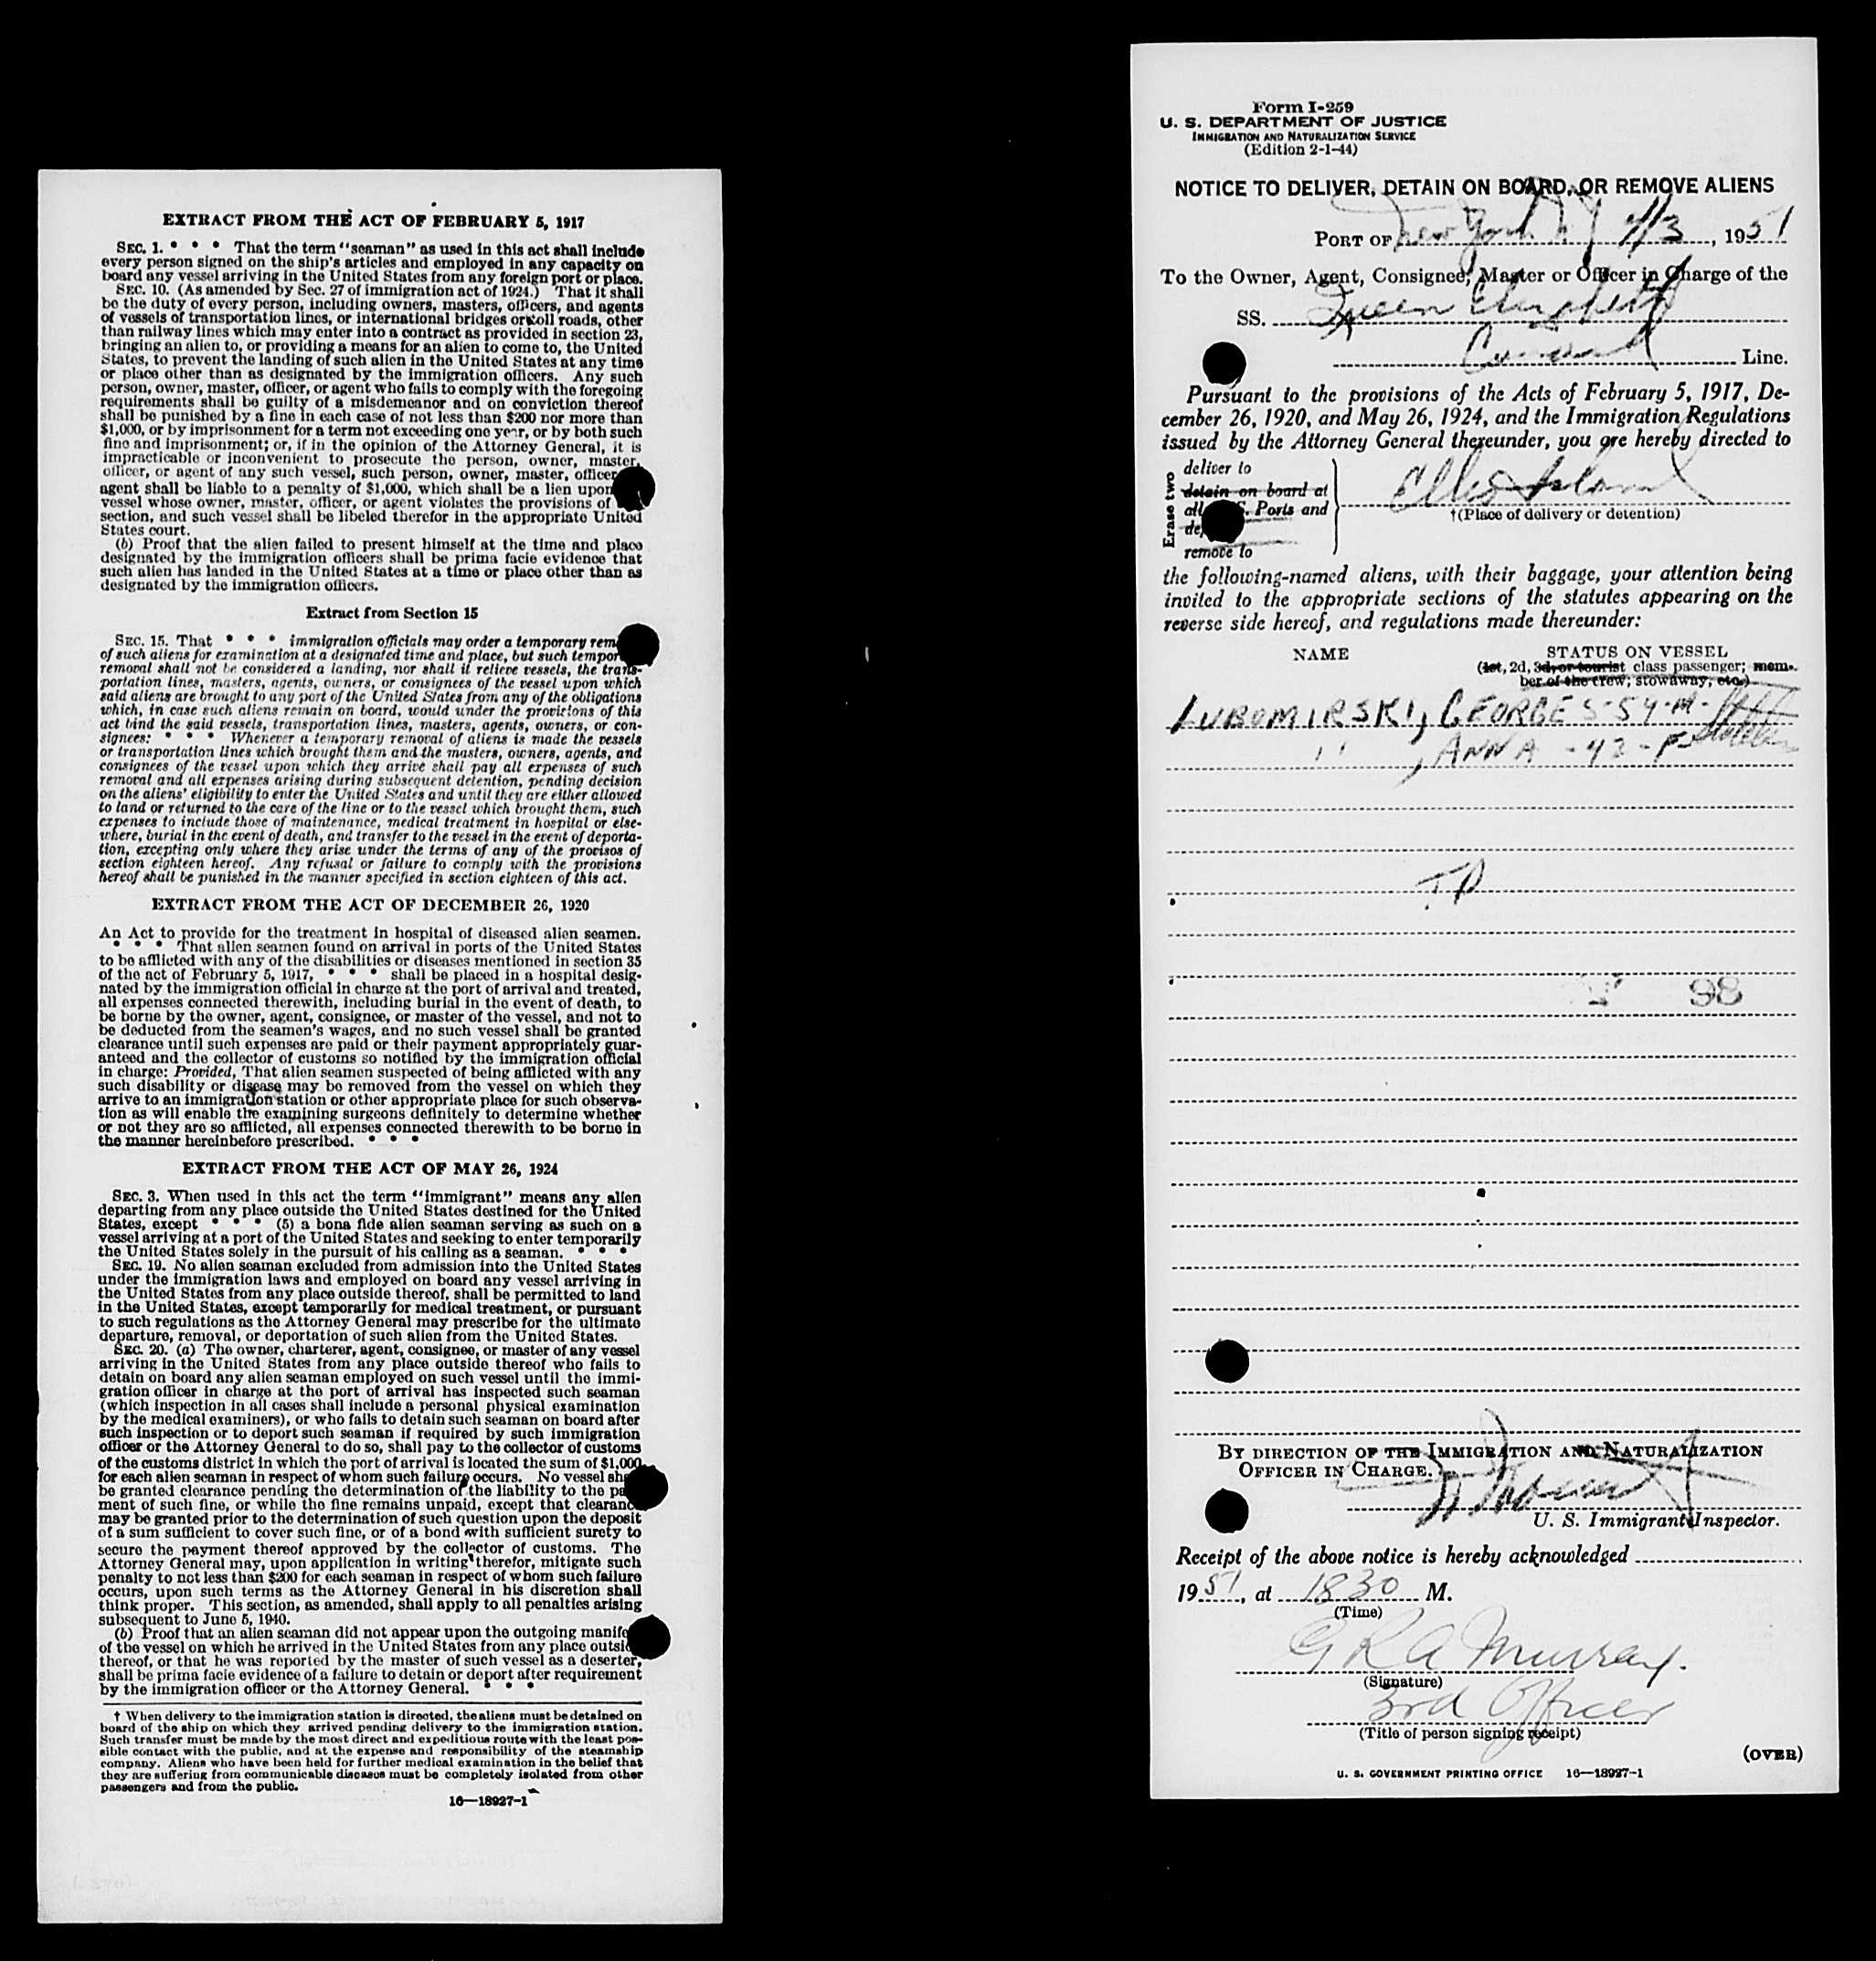 EXTRACT FROM THE ACT OF FEBRUARY 5, 1917
SEC. 1. * * * That the term "seaman" as used in this act shall include
every person signed on the ship's articles and employed in any capacity on
board any vessel arriving in the United States from any foreign port or place.
SEC. 10. (As amended by Sec. 27 of immigration act of 1924.) That it shall
be the duty of every person, including owners, masters, officers, and agents
of vessels of transportation lines, or international bridges or toll roads, other
than railway lines which may enter into a contract as provided in section 23,
bringing an alien to, or providing a means for an alien to come to, the United
States, to prevent the landing of such alien in the United States at any time
or place other than as designated by the immigration officers. Any such
person, owner, master, officer, or agent who fails to comply with the foregoing
requirements shall be guilty of a misdemeanor and on conviction thereof
shall be punished by a fine in each case of not less than $200 nor more than
$1,000, or by imprisonment for a term not exceeding one year, or by both such
fine and imprisonment; or, if in the opinion of the Attorney General, it is
impracticable or inconvenient to prosecute the person, owner, master,
officer, or agent of any such vessel, such person, owner, master, officer
agent shall be liable to a penalty of $1,000, which shall be a lien upon
vessel whose owner, master, officer, or agent violates the provisions of
section, and such vessel shall be libeled therefor in the appropriate United
States court.
(b) Proof that the alien failed to present himself at the time and place
designated by the immigration officers shall be prima facie evidence that
such alien has landed in the United States at a time or place other than as
designated by the immigration officers.
Extract from Section 15
SEC. 15. That * * * immigration officials may order a temporary rem
of such aliens for examination at a designated time and place, but such tempor
removal shall not be considered a landing, nor shall it relieve vessels, the trans-
portation lines, masters, agents, owners, or consignees of the vessel upon which
said aliens are brought to any port of the United States from any of the obligations
which, in case such aliens remain on board, would under the provisions of this
act bind the said vessels, transportation lines, masters, agents, owners, or con-
signees: * * * Whenever a temporary removal of aliens is made the vessels
or transportation lines which brought them and the masters, owners, agents, and
consignees of the vessel upon which they arrive shall pay all expenses of such
removal and all expenses arising during subsequent detention, pending decision
on the aliens' eligibility to enter the United States and until they are either allowed
to land or returned to the care of the line or to the vessel which brought them, such
expenses to include those of maintenance, medical treatment in hospital or else-
where, burial in the event of death, and transfer to the vessel in the event of deporta-
tion, excepting only where they arise under the terms of any of the provisos of
section eighteen hereof. Any refusal or failure to comply with the provisions
hereof shall be punished in the manner specified in section eighteen of this act.
EXTRACT FROM THE ACT OF DECEMBER 26, 1920
An Act to provide for the treatment in hospital of diseased alien seamen.
* * * That alien seamen found on arrival in ports of the United States
to be afflicted with any of the disabilities or diseases mentioned in section 35
of the act of February 5, 1917, * * * shall be placed in a hospital desig-
nated by the immigration official in charge at the port of arrival and treated,
all expenses connected therewith, including burial in the event of death, to
be borne by the owner, agent, consignee, or master of the vessel, and not to
be deducted from the seamen's wages, and no such vessel shall be granted
clearance until such expenses are paid or their payment appropriately guar-
anteed and the collector of customs so notified by the immigration official
in charge: Provided, That alien seamen suspected of being afflicted with any
such disability or disease may be removed from the vessel on which they
arrive to an immigration station or other appropriate place for such observa-
tion as will enable the examining surgeons definitely to determine whether
or not they are so afflicted, all expenses connected therewith to be borne in
the manner hereinbefore prescribed. * * *
EXTRACT FROM THE ACT OF MAY 26, 1924
SEC. 3. When used in this act the term "immigrant" means any alien
departing from any place outside the United States destined for the United
States, except * * * (5) a bona fide alien seaman serving as such on a
vessel arriving at a port of the United States and seeking to enter temporarily
the United States solely in the pursuit of his calling as a seaman. * * *
SEC. 19. No alien seaman excluded from admission into the United States
under the immigration laws and employed on board any vessel arriving in
the United States from any place outside thereof, shall be permitted to land
in the United States, except temporarily for medical treatment, or pursuant
to such regulations as the Attorney General may prescribe for the ultimate
departure, removal, or deportation of such alien from the United States.
SEC. 20. (a) The owner, charterer, agent, consignee, or master of any vessel
arriving in the United States from any place outside thereof who fails to
detain on board any alien seaman employed on such vessel until the immi-
gration officer in charge at the port of arrival has inspected such seaman
(which inspection in all cases shall include a personal physical examination
by the medical examiners), or who fails to detain such seaman on board after
such inspection or to deport such seaman if required by such immigration
officer or the Attorney General to do so, shall pay to the collector of customs
of the customs district in which the port of arrival is located the sum of $1,000
for each alien seaman in respect of whom such failure occurs. No vessel sha
be granted clearance pending the determination of the liability to the pa
ment of such fine, or while the fine remains unpaid, except that clearanc
may be granted prior to the determination of such question upon the deposit
of a sum sufficient to cover such fine, or of a bond with sufficient surety to
secure the payment thereof approved by the collector of customs. The
Attorney General may, upon application in writing therefor, mitigate such
penalty to not less than $200 for each seaman in respect of whom such failure
occurs, upon such terms as the Attorney General in his discretion shall
think proper. This section, as amended, shall apply to all penalties arising
subsequent to June 5, 1940.
(b) Proof that an alien seaman did not appear upon the outgoing manife
of the vessel on which he arrived in the United States from any place outsid
thereof, or that he was reported by the master of such vessel as a deserter,
shall be prima facie evidence of a failure to detain or deport after requirement
by the immigration officer or the Attorney General. * * *
† When delivery to the immigration station is directed, the aliens must be detained on
board of the ship on which they arrived pending delivery to the immigration station.
Such transfer must be made by the most direct and expeditious route with the least pos-
sible contact with the public, and at the expense and responsibility of the steamship
company. Aliens who have been held for further medical examination in the belief that
they are suffering from communicable diseases must be completely isolated from other
passengers and from the public.
16—18927-1
Form I-259
U. S. DEPARTMENT OF JUSTICE
IMMIGRATION AND NATURALIZATION SERVICE
(Edition 2-1-44)
NOTICE TO DELIVER, DETAIN ON BOARD, OR REMOVE ALIENS
PORT OF New York N Y 4/3, 1951
To the Owner, Agent, Consignee, Master or Officer in Charge of the
SS. Queen Elizabeth
Cunard Line.
Pursuant to the provisions of the Acts of February 5, 1917, De-
cember 26, 1920, and May 26, 1924, and the Immigration Regulations
issued by the Attorney General thereunder, you are hereby directed to
Erase two
deliver to
detain on board at
all S. Ports and
de
remove to
Ellis Island
†(Place of delivery or detention)
the following-named aliens, with their baggage, your attention being
invited to the appropriate sections of the statutes appearing on the
reverse side hereof, and regulations made thereunder:
NAME STATUS ON VESSEL
(1st, 2d, 3d, or tourist class passenger; mem-
ber of the crew; stowaway, etc.)
LUBOMIRSKI, GEORGES-54-M-
" , ANNA -42-F-
TD
98
BY DIRECTION OF THE IMMIGRATION AND NATURALIZATION
OFFICER IN CHARGE.
U. S. Immigrant Inspector.
Receipt of the above notice is hereby acknowledged
1951, at 1830 M.
(Time)
G R A Murray.
(Signature)
3rd Officer
(Title of person signing receipt)
(OVER)
U. S. GOVERNMENT PRINTING OFFICE 16—18927-1